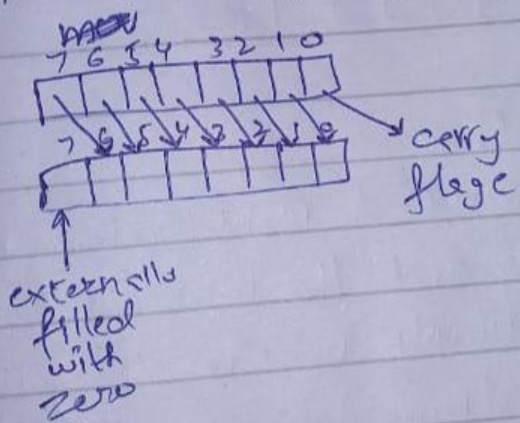 7 6 5 4 3 2 1 0
7 6 5 4 3 2 1 0
carry
flage
externally
filled
with
zero